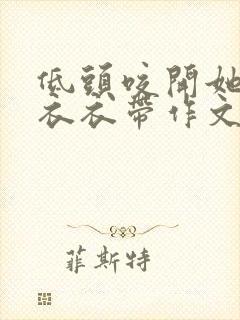 低頭咬開她
衣衣帶作文
菲斯特